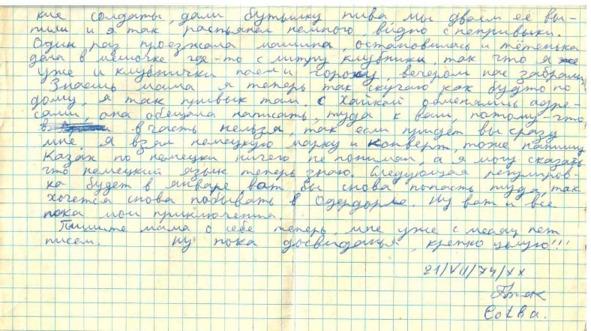 кие солдаты дали бутылку пива мы двоем ее вы-
пили и я так распьянел немного, видно с непривыки.
Один раз проезжала машина, остановилась и тетенька
дала в мешочке где-то с литру клубники, так что я же
уже и клубнички поел и вечером нас забрали
Знаешь мама я теперь так скучаю как будто по
дому, я так привык там. С Хайкой обменялись адре-
сами, она обещала написать, туда к вам, потому что
в часть нельзя, так если придет вы сразу
мне, я взял немецкую марку и конверт, тоже напишу
Казах по немецки ничего не понимал, а я могу сказать
что немецкий язык теперь знаю. Следующая регулиров-
ка будет в январе вот бы снова попасть туда, так
хочется снова побывать в Одердорле. Ну вот и все
пока мои приключения.
Пишите мама о себе теперь, мне уже с месяц нет
писем. Ну пока досвидания, крепко целую!!!
21/VII/74/XX